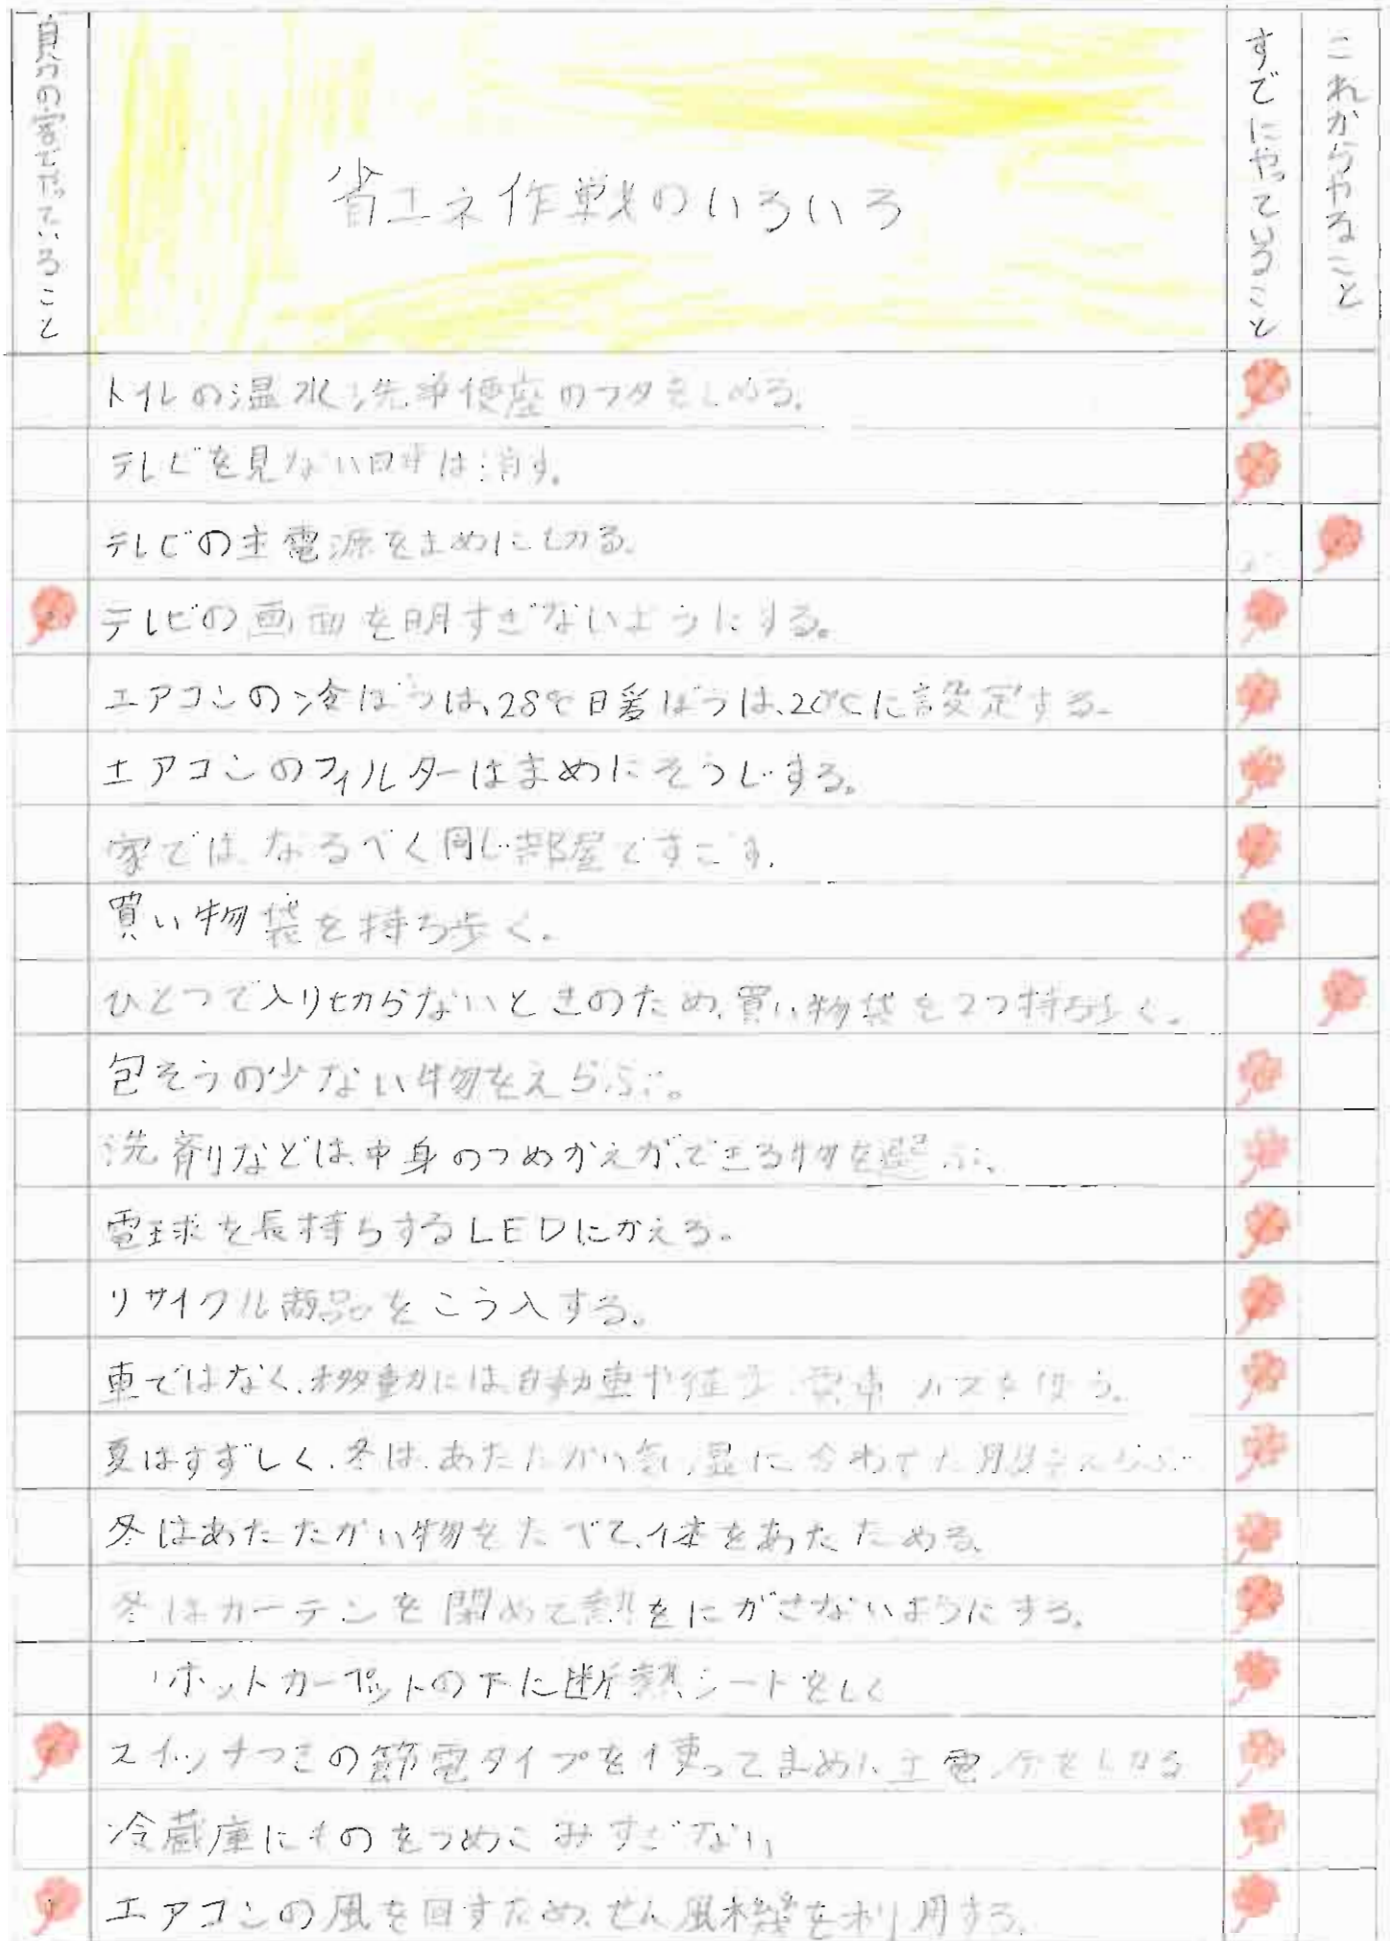 自分の家でやっていること
省エネ作戦のいろいろ
すでにやっていること
これからやること
トイレの温水洗浄便座のフタをしめる。
テレビを見ない時は消す。
テレビの主電源をまめに切る。
テレビの画面を明すぎないようにする。
エアコンの冷ぼうは、28℃暖ぼうは、20℃に設定する。
エアコンのフィルターはまめにそうじする。
家ではなるべく同じ部屋ですごす。
買い物袋を持ち歩く。
ひとつで入り切らないときのため、買い物袋を2つ持ち歩く。
包そうの少ない物をえらぶ。
洗剤などは、中身のつめかえが、できる物を選ぶ。
電球を長持ちするLEDにかえる。
リサイクル商品をこう入する。
車ではなく、移動には、自動車や徒歩、電車、バスを使う。
夏はすずしく、冬は、あたたかい気温に合わせた服をえらぶ
冬はあたたかい物をたべて、体をあたためる。
冬はカーテンを閉めて熱をにがさないようにする。
ホットカーペットの下に断熱シートをしく
スイッチつきの節電タイプを使ってまめに主電源をしめる
冷蔵庫にものをつめこみすぎない
エアコンの風を回すため、せん風機を利用する。